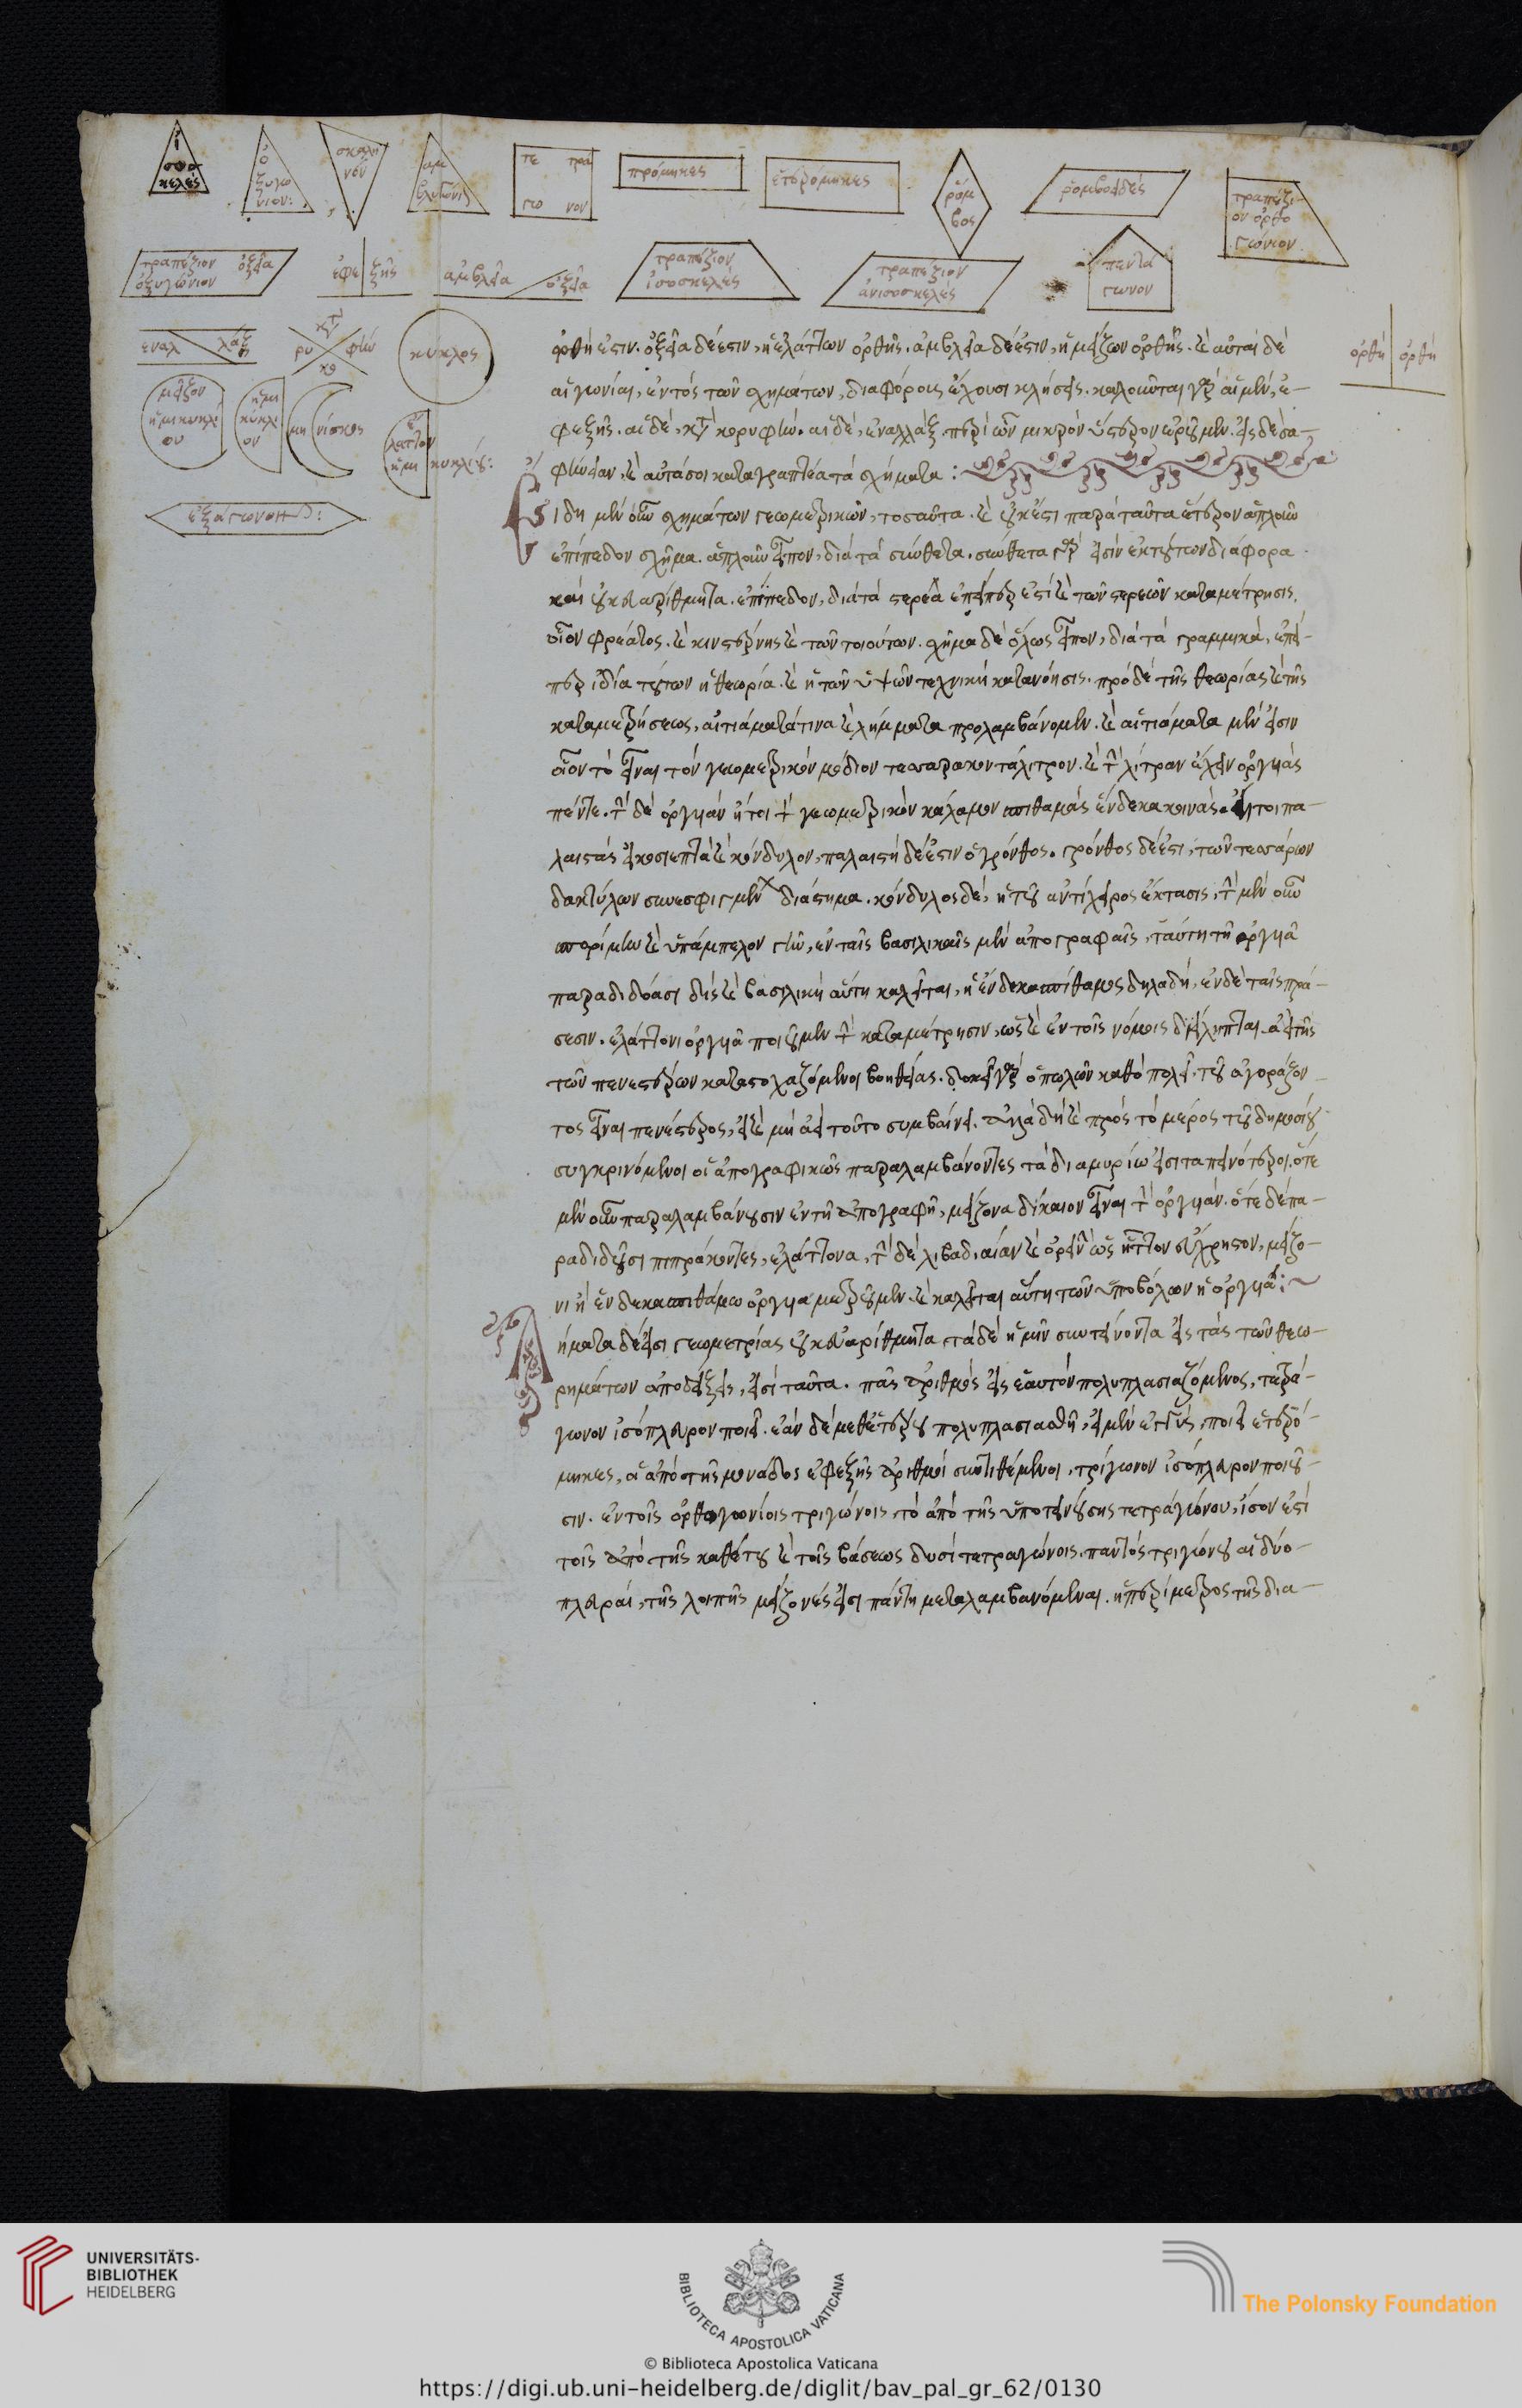 ἰ
σοσ
κελές
ὀ
ξυγώ
νιον:
σκαλη
νόν
ἀμ
βλυγώνιον
τε τρα
γω νον
πρόμηκες
ἑτερόμηκες
ῥόμ
βος
ῥομβοειδές
τραπέζι
ον ὀρθο
γώνιον
τραπέζιον ὀξεῖα
ὀξυγώνιον
ἐφε ξῆς
ἀμβλεῖα ὀξεῖα
τραπέζιον
ἰσοσκελές
τραπέζιον
ἀνισοσκελές
πεντά
γωνον
ἐναλ λάξ
κατ
ρυ φήν
κο
κύκλος
ὀρθή ὀρθή
μεῖζον
ἡμικυκλί
ου
ἡμι
κύκλι
ον
μη νίσκος
ἔ
λαττον
ἡμι κυκλίου:
ἑξάγωνον:
ὀρθή ἐστιν. ὀξεῖα δέ ἐστιν, ἡ ἐλάττων ὀρθῆς. ἀμβλεῖα δέ ἐστιν, ἡ μείζων ὀρθῆς. καὶ αὗται δὲ
αἱ γωνίαι, ἐντὸς τῶν σχημάτων, διαφόρους ἔχουσι κλήσεις. καλοῦνται γὰρ αἱ μὲν, ἐ-
φεξῆς. αἱ δὲ, κατὰ κορυφήν. αἱ δὲ, ἐναλλάξ. περὶ ὧν μικρὸν ὕστερον ἐροῦμεν. εἰς δὲ σα-
φήνειαν, καὶ αὐτά σοι καταγραπτέα τὰ σχήματα:
Εἴδη μὲν οὖν σχημάτων γεωμετρικῶν, τοσαῦτα. καὶ οὐκ ἔστι παρὰ ταῦτα ἕτερον ἁπλοῦν
ἐπίπεδον σχῆμα. ἁπλοῦν εἶπον, διὰ τὰ σύνθετα. σύνθετα γὰρ εἰσὶν ἐκ τούτων διάφορα
καὶ οὐκ εὐαρίθμητα. ἐπίπεδον, διὰ τὰ στερεά ἐπείπερ ἐστὶ καὶ τῶν στερεῶν καταμέτρησις.
οἷον φρέατος. καὶ κινστέρνης καὶ τῶν τοιούτων. σχῆμα δὲ ὅλως εἶπον, διὰ τὰ γραμμικὰ, ἐπεί-
περ ἰδία τούτων ἡ θεωρία. καὶ ἡ τῶν ὑψῶν τεχνικὴ κατανόησις. πρὸ δὲ τῆς θεωρίας καὶ τῆς
καταμετρήσεως, αἰτιάματά τινα καὶ λήμματα προλαμβάνομεν. καὶ αἰτιάματα μὲν εἰσὶν
οἷον τὸ εἶναι τὸν γεωμετρικὸν μόδιον τεσσαρακοντάλιτρον. καὶ τὴν λίτραν ἔχειν ὀργυιὰς
πέντε. τὴν δὲ ὀργυιὰν ἤτοι τὸν γεωμετρικὸν κάλαμον σπιθαμὰς ἕνδεκα κοινάς. ἤτοι πα-
λαιστὰς εἰκοσιεπτὰ καὶ κόνδυλον, παλαιστὴ δέ ἐστιν ὁ γρόνθος. γρόνθος δέ ἐστι, τῶν τεσσάρων
δακτύλων συνεσφιγμένων διάστημα. κόνδυλος δέ, ἡ τοῦ ἀντίχειρος ἔκτασις, τὴν μὲν οὖν
σπορίμην καὶ ὑπάμπελον γῆν, ἐν ταῖς βασιλικαῖς μὲν ἀπογραφαῖς, ταύτῃ τῇ ὀργυιᾷ
παραδιδόασι διὸ καὶ βασιλικὴ αὕτη καλεῖται, ἡ ἑνδεκασπίθαμος δηλαδή, ἐν δὲ ταῖς πρά-
σεσιν. ἐλάττονι ὀργυιᾷ ποιοῦμεν τὴν καταμέτρησιν, ὡς καὶ ἐν τοῖς νόμοις διείληπται. ἀεὶ τῆς
τῶν πενεστέρων καταστοχαζόμενοι βοηθείας. δοκεῖ γὰρ ὁ πωλῶν καθὸ πολεῖ. τοῦ ἀγοράζον-
τος εἶναι πενέστερος, εἰ καὶ μὴ ἀεὶ τοῦτο συμβαίνει. ἀλλὰ δὴ καὶ πρὸς τὸ μέρος τοῦ δημοσίου
συγκρινόμενοι οἱ ἀπογραφικῶς παραλαμβάνοντες τὰ διαμυρίω εἰσι ταπεινότεροι. ὅτε
μὲν οὖν παραλαμβάνουσιν ἐν τῇ ἀπογραφῇ, μείζονα δίκαιον εἶναι τὴν ὀργυιάν. ὅτε δὲ πα-
ραδιδοῦσι πιπράσκοντες, ἐλάττονα, τὴν δὲ λιβαδιαίαν καὶ ὀρεινὴν ὡς ἧττον εὔχρηστον, μείζο-
νι ἢ ἑνδεκασπιθάμω ὀργυιᾷ μετροῦμεν. καὶ καλεῖται αὕτη τῶν ὑποβόλων ἡ ὀργυιά:~
Λήμματα δέ εἰσι γεωμετρίας οὐκ εὐαρίθμητα τὰ δὲ ἡμῖν συντείνοντα εἰς τὰς τῶν θεω-
ρημάτων ἀποδείξεις, εἰσὶ ταῦτα. πᾶς ἀριθμὸς εἰς ἑαυτὸν πολυπλασιαζόμενος, τετρά-
γωνον ἰσόπλευρον ποιεῖ. ἐὰν δὲ μεθ᾽ ἑτέρου πολυπλασιασθῇ, εἰ μὲν ἑνὸς, ποιεῖ ἑτερό-
μηκες, οἱ ἀπὸ τῆς μονάδος ἐφεξῆς ἀριθμοὶ συντιθέμενοι, τρίγωνον ἰσόπλευρον ποιοῦ-
σιν. ἐν τοῖς ὀρθογωνίοις τριγώνοις, τὸ ἀπὸ τῆς ὑποτεινούσης τετράγωνον, ἴσον ἐστὶ
τοῖς ἀπὸ τῆς καθέτου καὶ τοῖς βάσεως δυσὶ τετραγώνοις. παντὸς τριγώνου αἱ δύο
πλευραί, τῆς λοιπῆς μείζονές εἰσι πάντῃ μεταλαμβανόμεναι. ἡ περίμετρος τῆς δια-
UNIVERSITÄTS-
BIBLIOTHEK
HEIDELBERG
BIBLIOTECA APOSTOLICA VATICANA
The Polonsky Foundation
© Biblioteca Apostolica Vaticana
https://digi.ub.uni-heidelberg.de/diglit/bav_pal_gr_62/0130